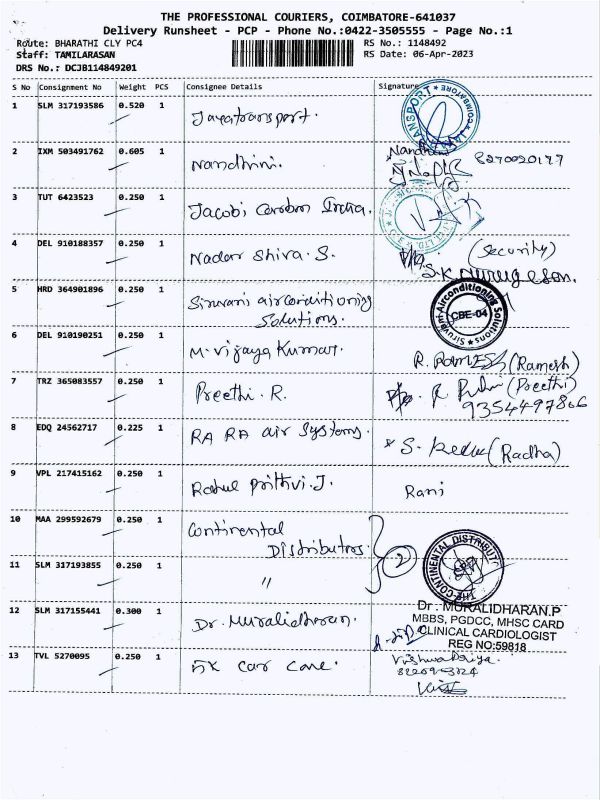 THE PROFESSIONAL COURIERS, COIMBATORE-641037
Delivery Runsheet - PCP - Phone No.:0422-3505555 - Page No.:1
Route: BHARATHI CLY PC4
RS No.: 1148492
Staff: TAMILARASAN
RS Date: 06-Apr-2023
DRS No.: DCJB114849201
S No Consignment No Weight PCS Consignee Details Signature
1 SLM 317193586 0.520 1 Jayatransport.
2 IXM 503491762 0.605 1 Nandhini. Nandhini
3 TUT 6423523 0.250 1 Jacobi Carbon India.
4 DEL 910188357 0.250 1 Nadar Shiva. S. (Security)
S.K. Murugesan.
5 HRD 364901896 0.250 1 Siruvani airconditioning
Solutions.
Siruvani Airconditioning Solutions
CBE-04
6 DEL 910190251 0.250 1 M. Vijaya Kumar. R. RAMESH (Ramesh)
7 TRZ 365083557 0.250 1 Preethi. R. (Preethi)
9354497866
8 EDQ 24562717 0.225 1 RA RA air Systems. (Radha)
9 VPL 217415162 0.250 1 Rahul Prithvi. J. Rani
10 MAA 299592679 0.250 1 Continental
Distributors. 2
THE CONTINENTAL DISTRIBUTO
11 SLM 317193855 0.250 1 "
12 SLM 317155441 0.300 1 Dr. Muralidharan.
Dr. MURALIDHARAN.P
MBBS, PGDCC, MHSC CARD
CLINICAL CARDIOLOGIST
REG NO:59818
13 TVL 5270095 0.250 1 5K Car Care. Vishwa Priya.